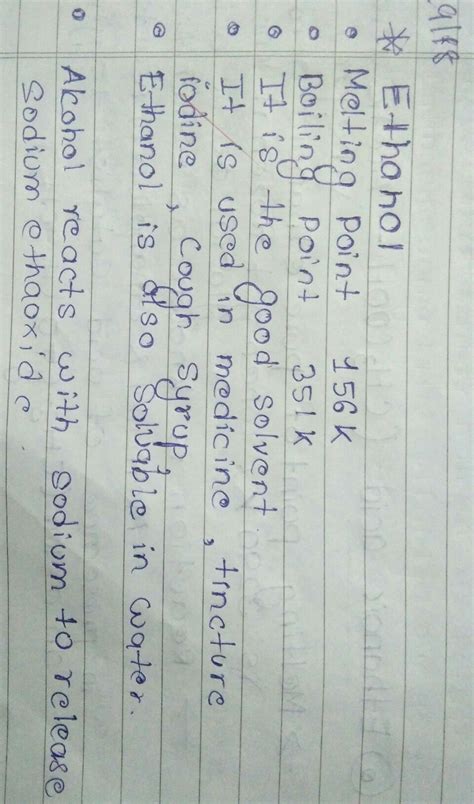 9/18
* Ethanol
• Melting point 156k
• Boiling point 351k
• It is the good solvent.
• It is used in medicine, tincture
iodine, cough syrup,
• Ethanol is also soluable in water.
• Alcohol reacts with sodium to release
sodium ethaoxide.